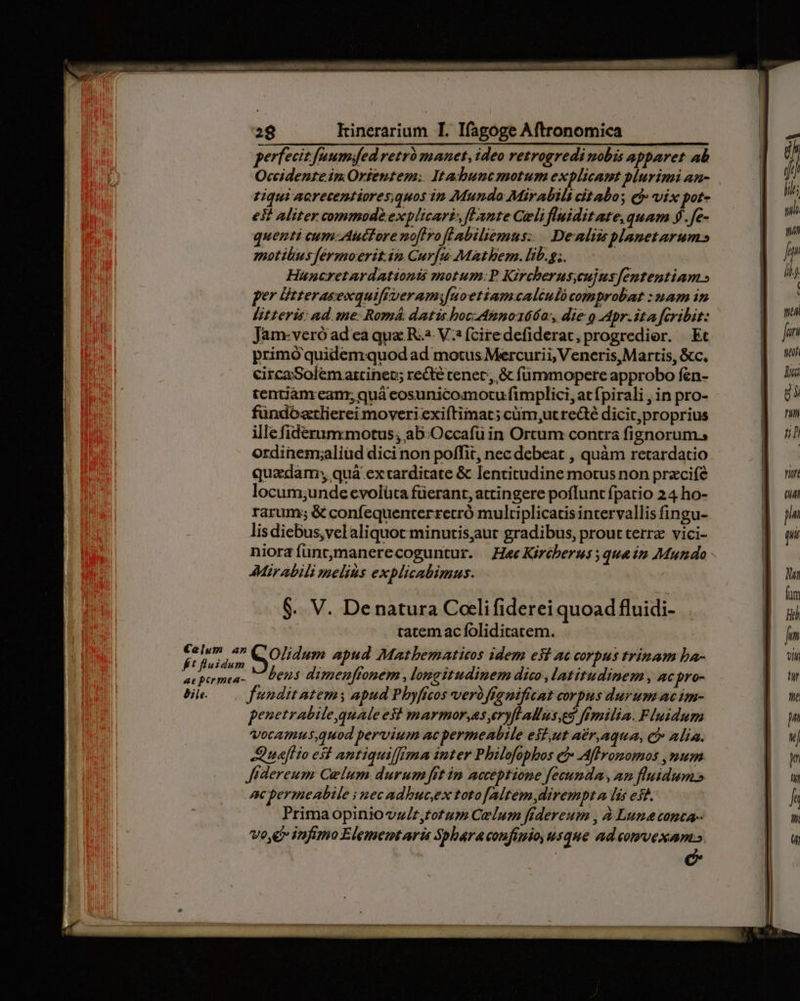 28 Itinerarium I. Isagoge Astronomica
perfecit suum, sed retrò manet, ideo retrogredi nobis apparet ab
Occidente in Orientem. Ita hunc motum explicant plurimi an-
tiqui ac recentiores, quos in Mundo Mirabili citabo; & vix pot-
est aliter commodè explicari, stante Cæli fluiditate, quam §. se-
quenti cum Auctore nostro stabiliemus. De aliis planetarum
motibus sermo erit in Cursu Mathem. lib. 5.
Hunc retardationis motum P. Kircherus, cujus sententiam
per litteras exquisiveram, suo etiam calculo comprobat: nam in
litteris ad me Româ datis hoc Anno 1660, die 9 Apr. ita scribit:
Jam verò ad ea quæ R.ᵃ V.ᵃ scire desiderat, progredior. Et
primò quidem quod ad motus Mercurii, Veneris, Martis, &c.
circa Solem attinet; rectè tenet, & summopere approbo sen-
tentiam eam, quâ eos unico motu simplici, at spirali, in pro-
fundo ætherei moveri existimat; cùm, ut rectè dicit, proprius
ille siderum motus, ab Occasu in Ortum contra signorum
ordinem, aliud dici non possit, nec debeat, quàm retardatio
quædam, quâ ex tarditate & lentitudine motus non præcisè
locum, unde evoluta fuerant, attingere possunt spatio 24 ho-
rarum; & consequenter retrò multiplicatis intervallis singu-
lis diebus, vel aliquot minutis, aut gradibus, prout terræ vici-
niora sunt, manere coguntur. Hæc Kircherus; quæ in Mundo
Mirabili meliùs explicabimus.
§. V. De natura Cœli siderei quoad fluidi-
tatem ac soliditatem.
Cælum an
sit fluidum
ac permea-
bile.
SOlidum apud Mathematicos idem est ac corpus trinam ha-
bens dimensionem, longitudinem dico, latitudinem, ac pro-
funditatem; apud Physicos verò significat corpus durum ac im-
penetrabile, quale est marmor, æs, crystallus, & similia. Fluidum
vocamus, quod pervium ac permeabile est, ut aër, aqua, & alia.
Quæstio est antiquissima inter Philosophos & Astronomos, num
sidereum Cælum durum sit in acceptione secunda, an fluidum
ac permeabile; nec adhuc, ex toto saltem, dirempta lis est.
Prima opinio vult, totum Cælum sidereum, à Lunæ conca-
vo, & infimo Elementaris Sphæræ confinio, usque ad convexam
&